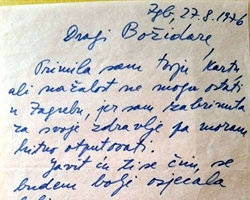 Zgb, 27.8.1976
Dragi Božidare,
Primila sam tvoju kartu
ali nažalost ne mogu ostati
u Zagrebu, jer sam zabrinuta
za svoje zdravlje pa moram
hitno otputovati.
Javit ću ti se čim, se
budem bolje osjećala